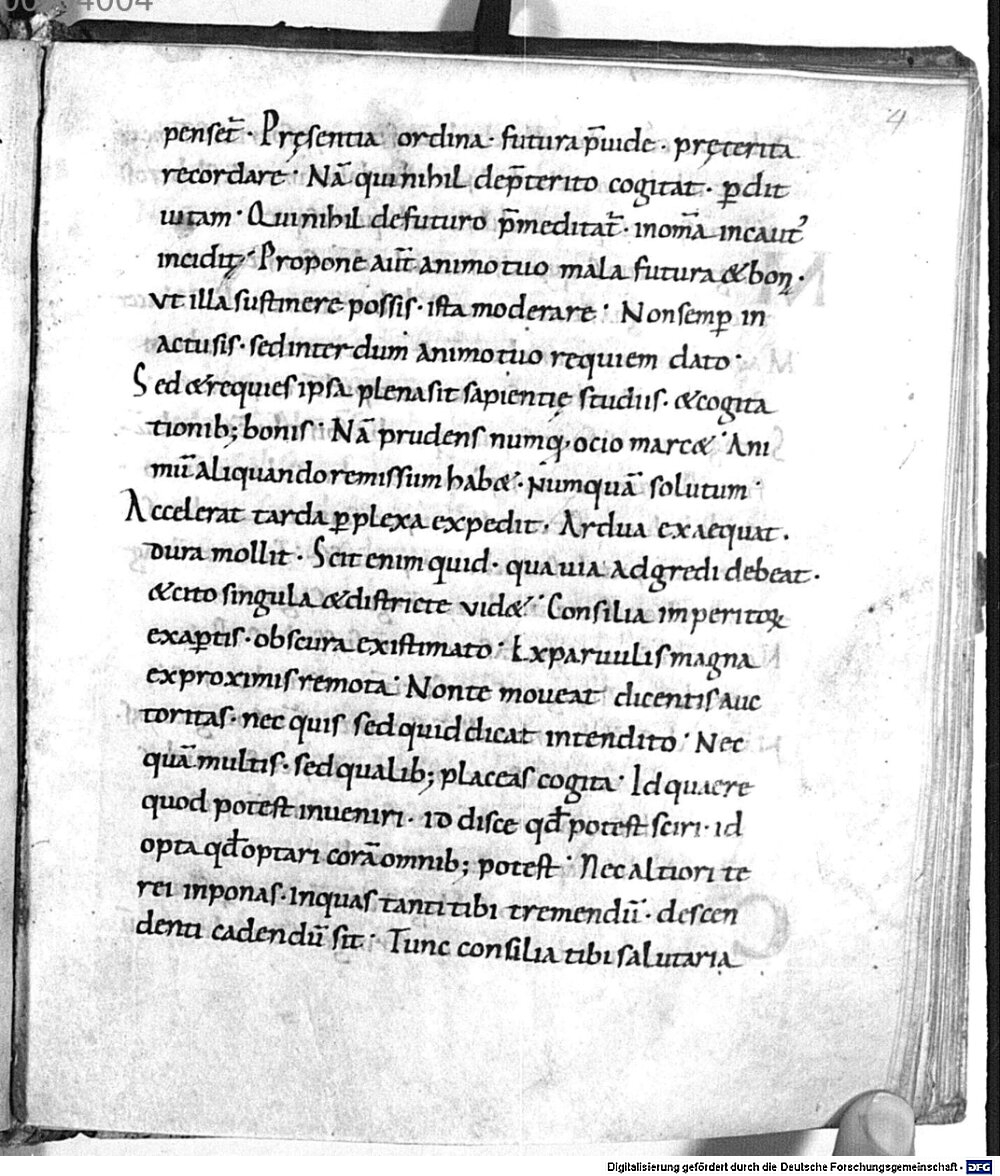 4
penset̄· Pręsentia ordina· futura p̄uide· pręterita
recordare· Nā qui nihil dep̄terito cogitat· ꝑdit
uitam· Qui nihil defuturo p̄meditat̄· inom̄a incautꝰ
incidit· Propone aūt animo tuo mala futura & bona·
vt illa sustinere possis· ista moderare· Non semꝑ in
actu sis· sed interdum animo tuo requiem dato·
Sed & requies ipsa plena sit sapientię studiis· & cogita
tionib; bonis· Nā prudens numq· ocio marc&· Ani
mū aliquando remissum hab&· Numquā solutum·
Accelerat tarda ꝑplexa expedit· Ardua exaequat·
dura mollit· Scit enim quid· qua uia adgredi debeat·
& cito singula & districte vid&· Consilia imperitoꝝ
ex aꝑtis· obscura existimato· Ex paruulis magna
ex proximis remota· Non te moueat dicentis auc
toritas· nec quis sed quid dicat intendito· Nec
quā multis· sed qualib; placeas cogita· Id quaere
quod potest inueniri· id disce qđ potest sciri· id
opta qđ optari corā omnib; potest· Nec altiori te
rei inponas· in quas tanti tibi tremendū· descen
denti cadendū sit· Tunc consilia tibi salutaria
Digitalisierung gefördert durch die Deutsche Forschungsgemeinschaft - DFG